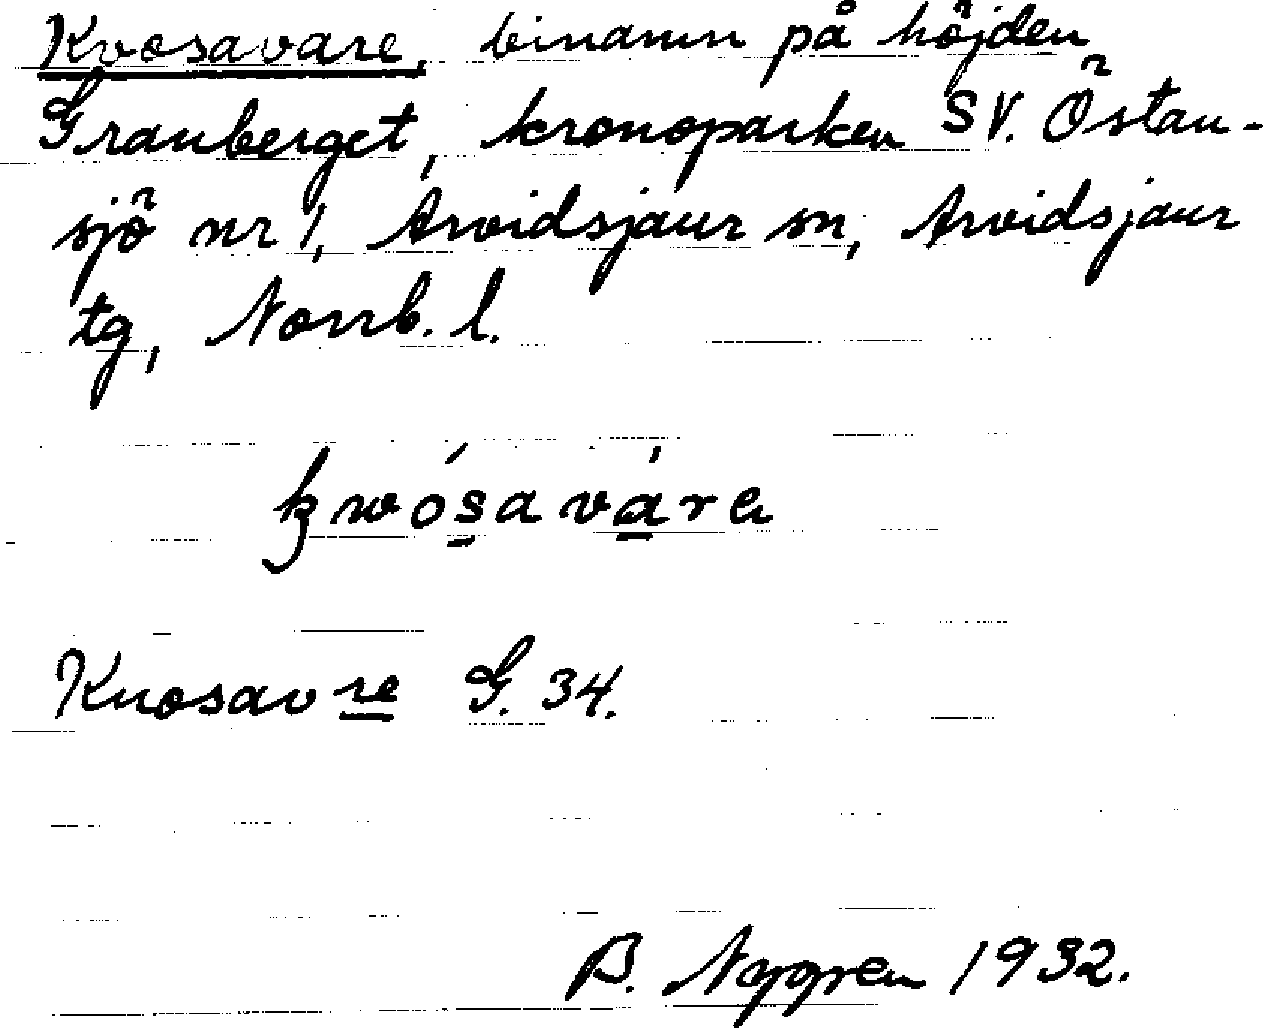 Kvosavare, binamn på höjden
Granberget, kronoparken SV. Östan-
sjö nr 1, Arvidsjaur sn, Arvidsjaur
tg, Norrb. l.
kwósaváre
Kuosavre G. 34.
B. Nygren 1932.